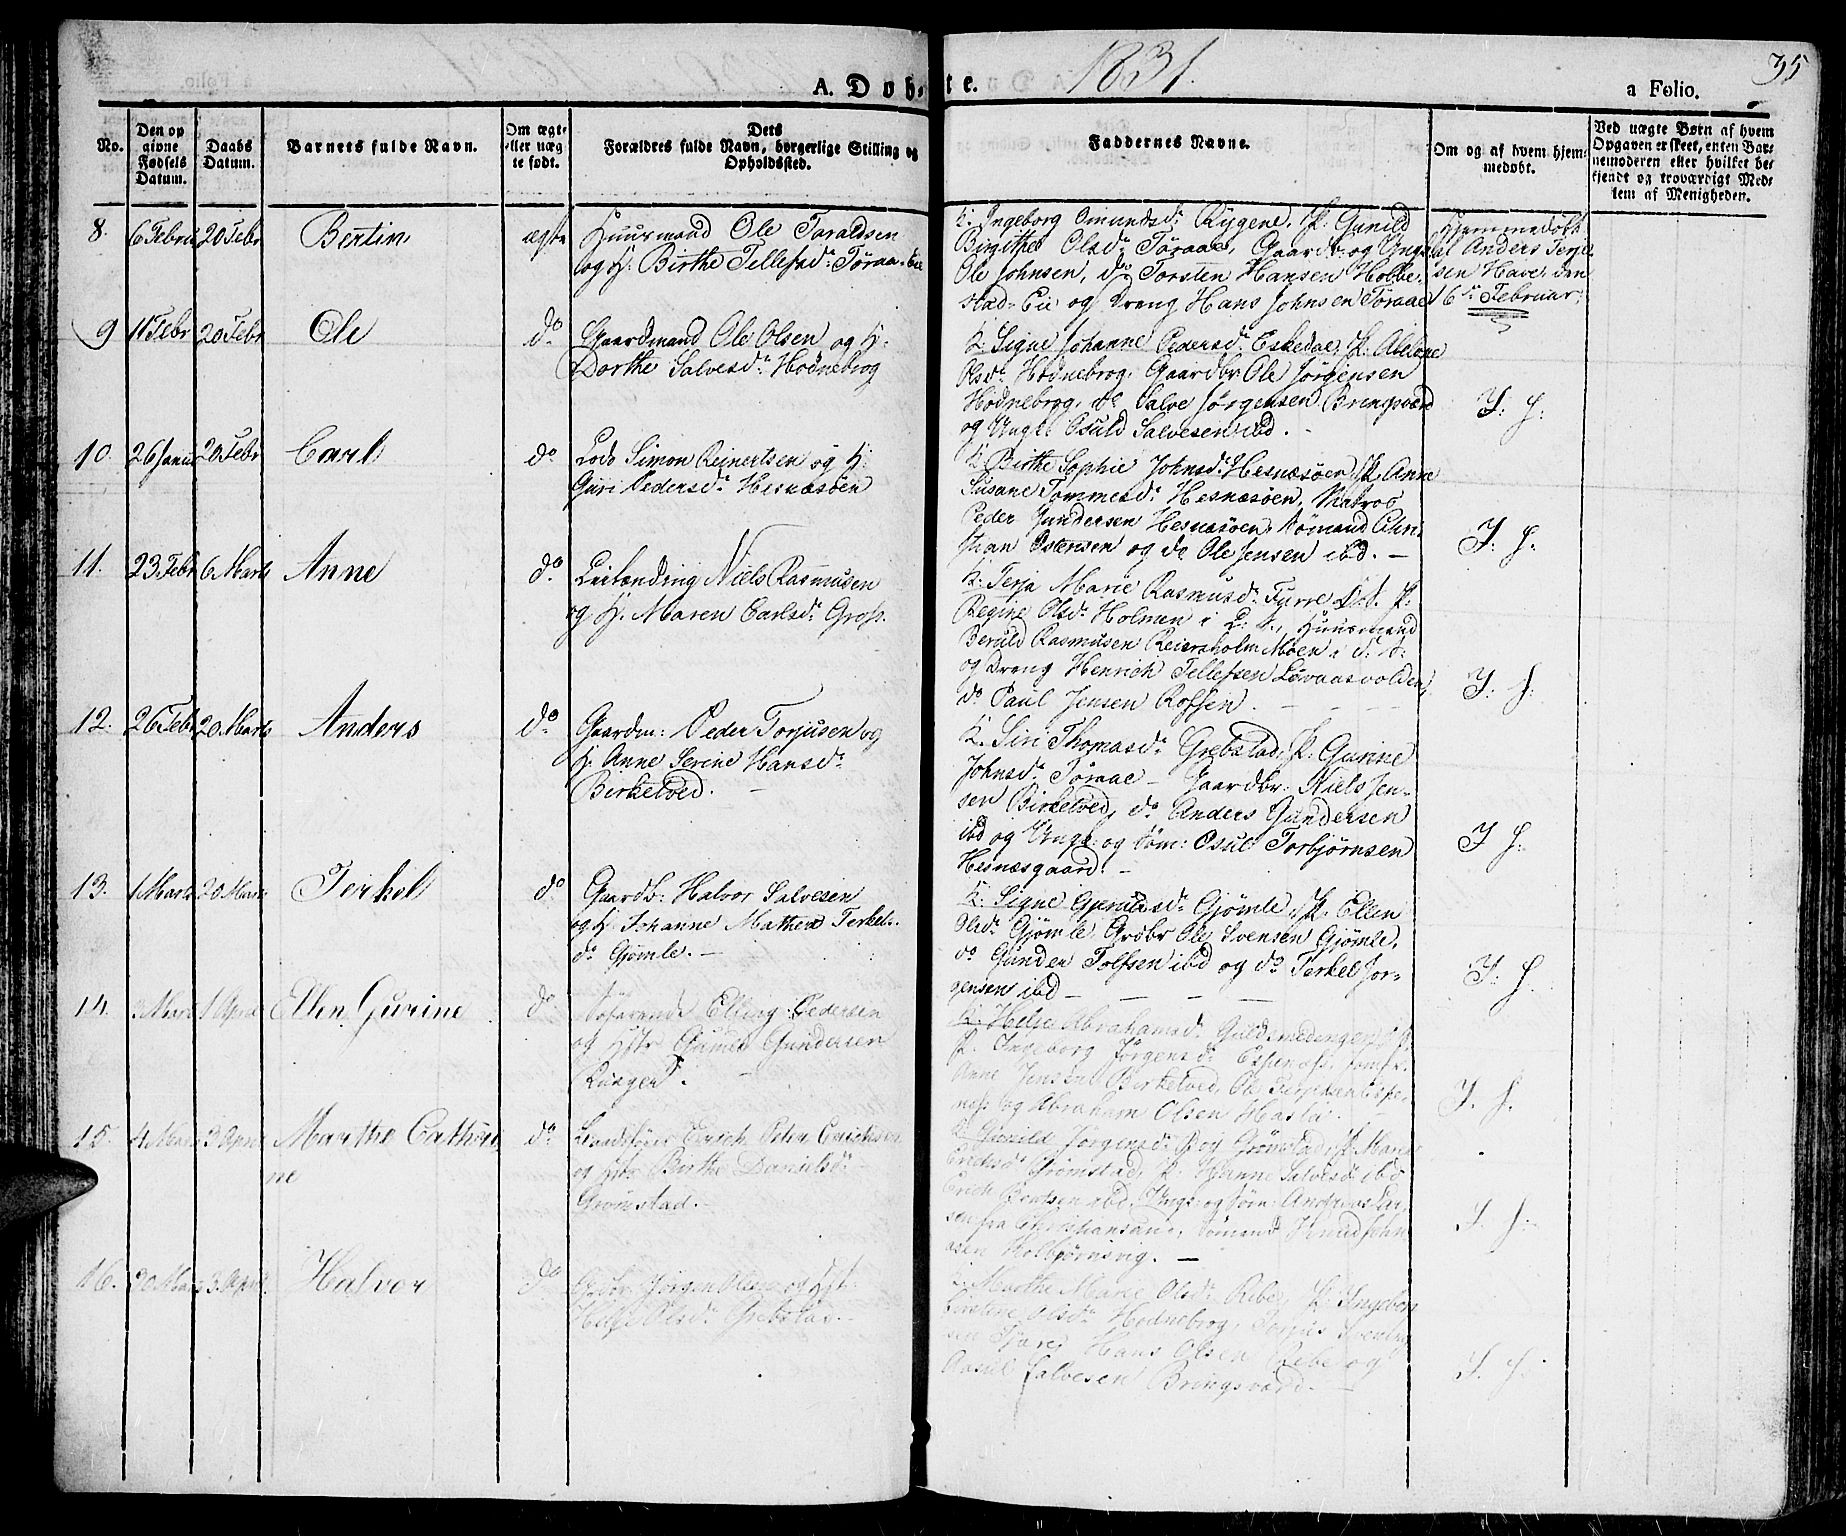 1831.
35
A. Døbte.
a Folio.
No.
Den opgivne Fødsels Datum.
Daabs Datum.
Barnets fulde Navn.
Om ægte eller uægte født.
Dets Forældres fulde Navn, borgerlige Stilling og Opholdssted.
Faddernes Navne.
Om og af hvem hjemmedøbt.
Ved uægte Børn af hvem Opgaven er skeet, enten Barnemoderen eller hvilket bekjendt og troværdigt Medlem af Menigheden.
8. 6 Febru 20 Febr Bertin ægte
Huusmand Ole Toraldsen
og H. Birthe Tellefsd: Tøraa-Eie
K: Ingeborg Omundsd: Rygene, P. Gunild
Birgithe Olsd: Tøraae, Gaardbr. og Ungk
Ole Johnsen, do Torsten Hansen Holve-
stad-Eie og Dreng Hans Johnsen Tøraae
Hjemmedøbt
af Anders Terje
sen Have, den
6te Februar.
9 11 Febr 20 Febr Ole do
Gaardmand Ole Olsen og H.
Dorthe Salvesd: Hodnebrog
K: Signe Johanne Pedersd: Eskedae, P: Abelone
Olsd: Hodnebrog, Gaardbr Ole Jørgensen
Hodnebrog, do Salve Jørgensen Bringsværd
og Ungk: Osuld Salvesen ibd. -
I: H:
10. 26 Janu 20 Febr Carl do
Lods Simon Reinertsen og H:
Guri Pedersd: Hesnæsøen
K: Birthe Sophie Johnsd: Hesnæsøen, P. Anne
Susane Tommesd: Hesnæsøen, Matros
Peder Gundersen Hesnæsøen, Sømand Chri-
stian Ostensen og do Ole Jensen ibd. -
I: H:
11. 23 Febr 6 Marts Anne do
Leilænding Niels Rasmusen
og H. Maren Carlsd: Gross.
K: Terja Marie Rasmusd: Furre P:
Regine Olsd: Holmen i L: S., Huusmand
Beruld Rasmusen Reiersholm Moen i
og Dreng Henrich Tellefsen Lovaasvolden,
do Paul Jensen Rossen. -
I: H:
12. 26 Febr 20 Marts Anders do
Gaardm: Peder Torjusen og
H. Anne Serine Hansd:
Birketved. -
K. Siri Thomasd: Grebstad, P: Gurine
Johnsd: Tøraae - Gaardbr: Niels Jen-
sen Birketved, do Anders Gundersen
ibd og Ungk: og Søm: Osul Torbjørnsen
Hesnæsgaard. -
I H:
13. 1 Marts 20 Marts Terkel do
Gaardb: Halvor Salvesen
og H. Johanne Mathea Terkel-
do Gjømle. -
K: Signe Gjømle, P. Ellen
Olsd: Gjømle, Grdbr Ole Svensen Gjømle,
do Gunder Tolfsen ibd og do Terkel Jør-
gensen ibd - - -
I: H.
14. 3 Marts 1 April Ellen Gurine do
Søfarende Elling Pedersen
og Hstr Gumel Gundersen
Kusger. -
K: Helje Abrahamsd: Guldsmedengen
P. Ingeborg Jørgensd: Espenæs, Jomfr.
Anne Jensen Birketved, Ole Terjesen Espe-
næs og Abraham Olsen Hasla.
I. H.
15. 4 Marts 3 April Marthe Cathri-
ne do
Landsfører Erich Peter Erichsen
og Hstr Birthe Danielsd: -
Grømstad. -
K: Gunild Jørgensd: Grømstad, P. Maren
Grømstad, P. Hanne Salvesd: ibd
Erich ibd, Ungk: og Søm: Andreas
sen fra Christiansand, Sømand Knud John-
sen Kolbjørnsvig. -
I. H:
16. 30 Marts 3 April Halvor do
Grdbr Jørgen Olsen og Hst:
Helje Olsd: Grebstad. -
K: Marthe Marie Olsd: Ribe, P: Ingeborg
Kirstine Olsd: Hodnebrog, Torjus
sen Hans Olsen Ribe og
Aasul Salvesen Bringsværd. -
I. H.